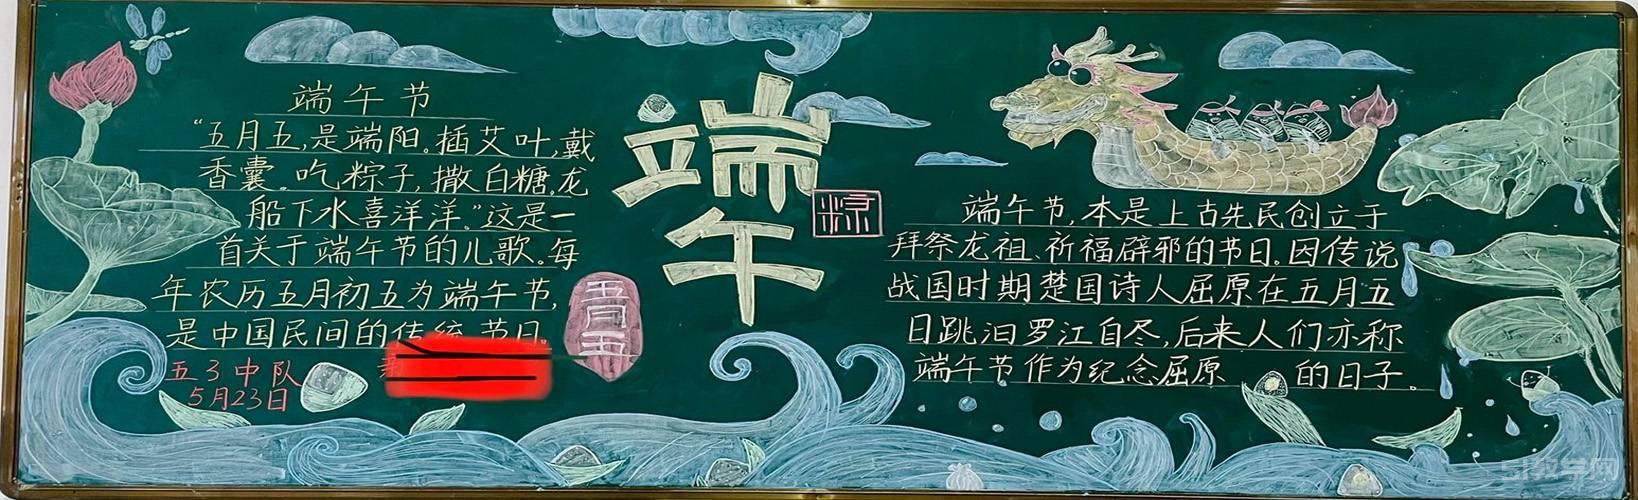 端午节
“五月五,是端阳。插艾叶,戴
香囊。吃粽子,撒白糖。龙
船下水喜洋洋。”这是一
首关于端午节的儿歌。每
年农历五月初五为端午节,
是中国民间的传统节日。
五3中队
5月23日
五月五
端午
粽
端午节,本是上古先民创立于
拜祭龙祖、祈福辟邪的节日。因传说
战国时期楚国诗人屈原在五月五
日跳汨罗江自尽,后来人们亦称
端午节作为纪念屈原 的日子。
51教学网